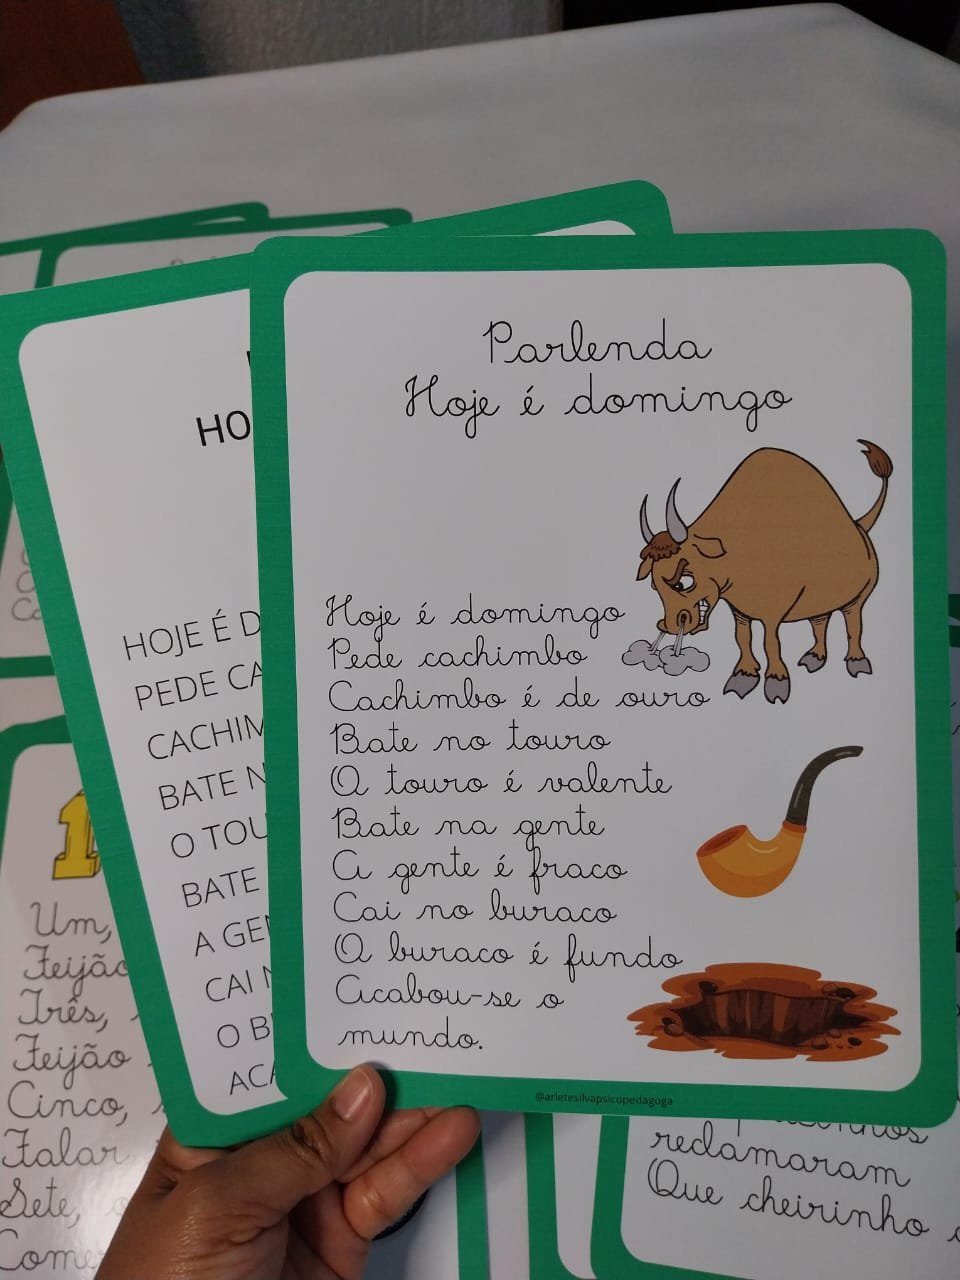 Parlenda
Hoje é domingo
Hoje é domingo
Pede cachimbo
Cachimbo é de ouro
Bate no touro
O touro é valente
Bate na gente
A gente é fraco
Cai no buraco
O buraco é fundo
Acabou-se o
mundo.
@arletesilvapsicopedagoga
HO
HOJE É D
PEDE CA
CACHIM
BATE N
O TOU
BATE
A GEN
CAI N
O B
ACA
1
Um,
Feijão
Três,
Feijão
Cinco,
Falar
Sete,
Come
reclamaram
Que cheirinho